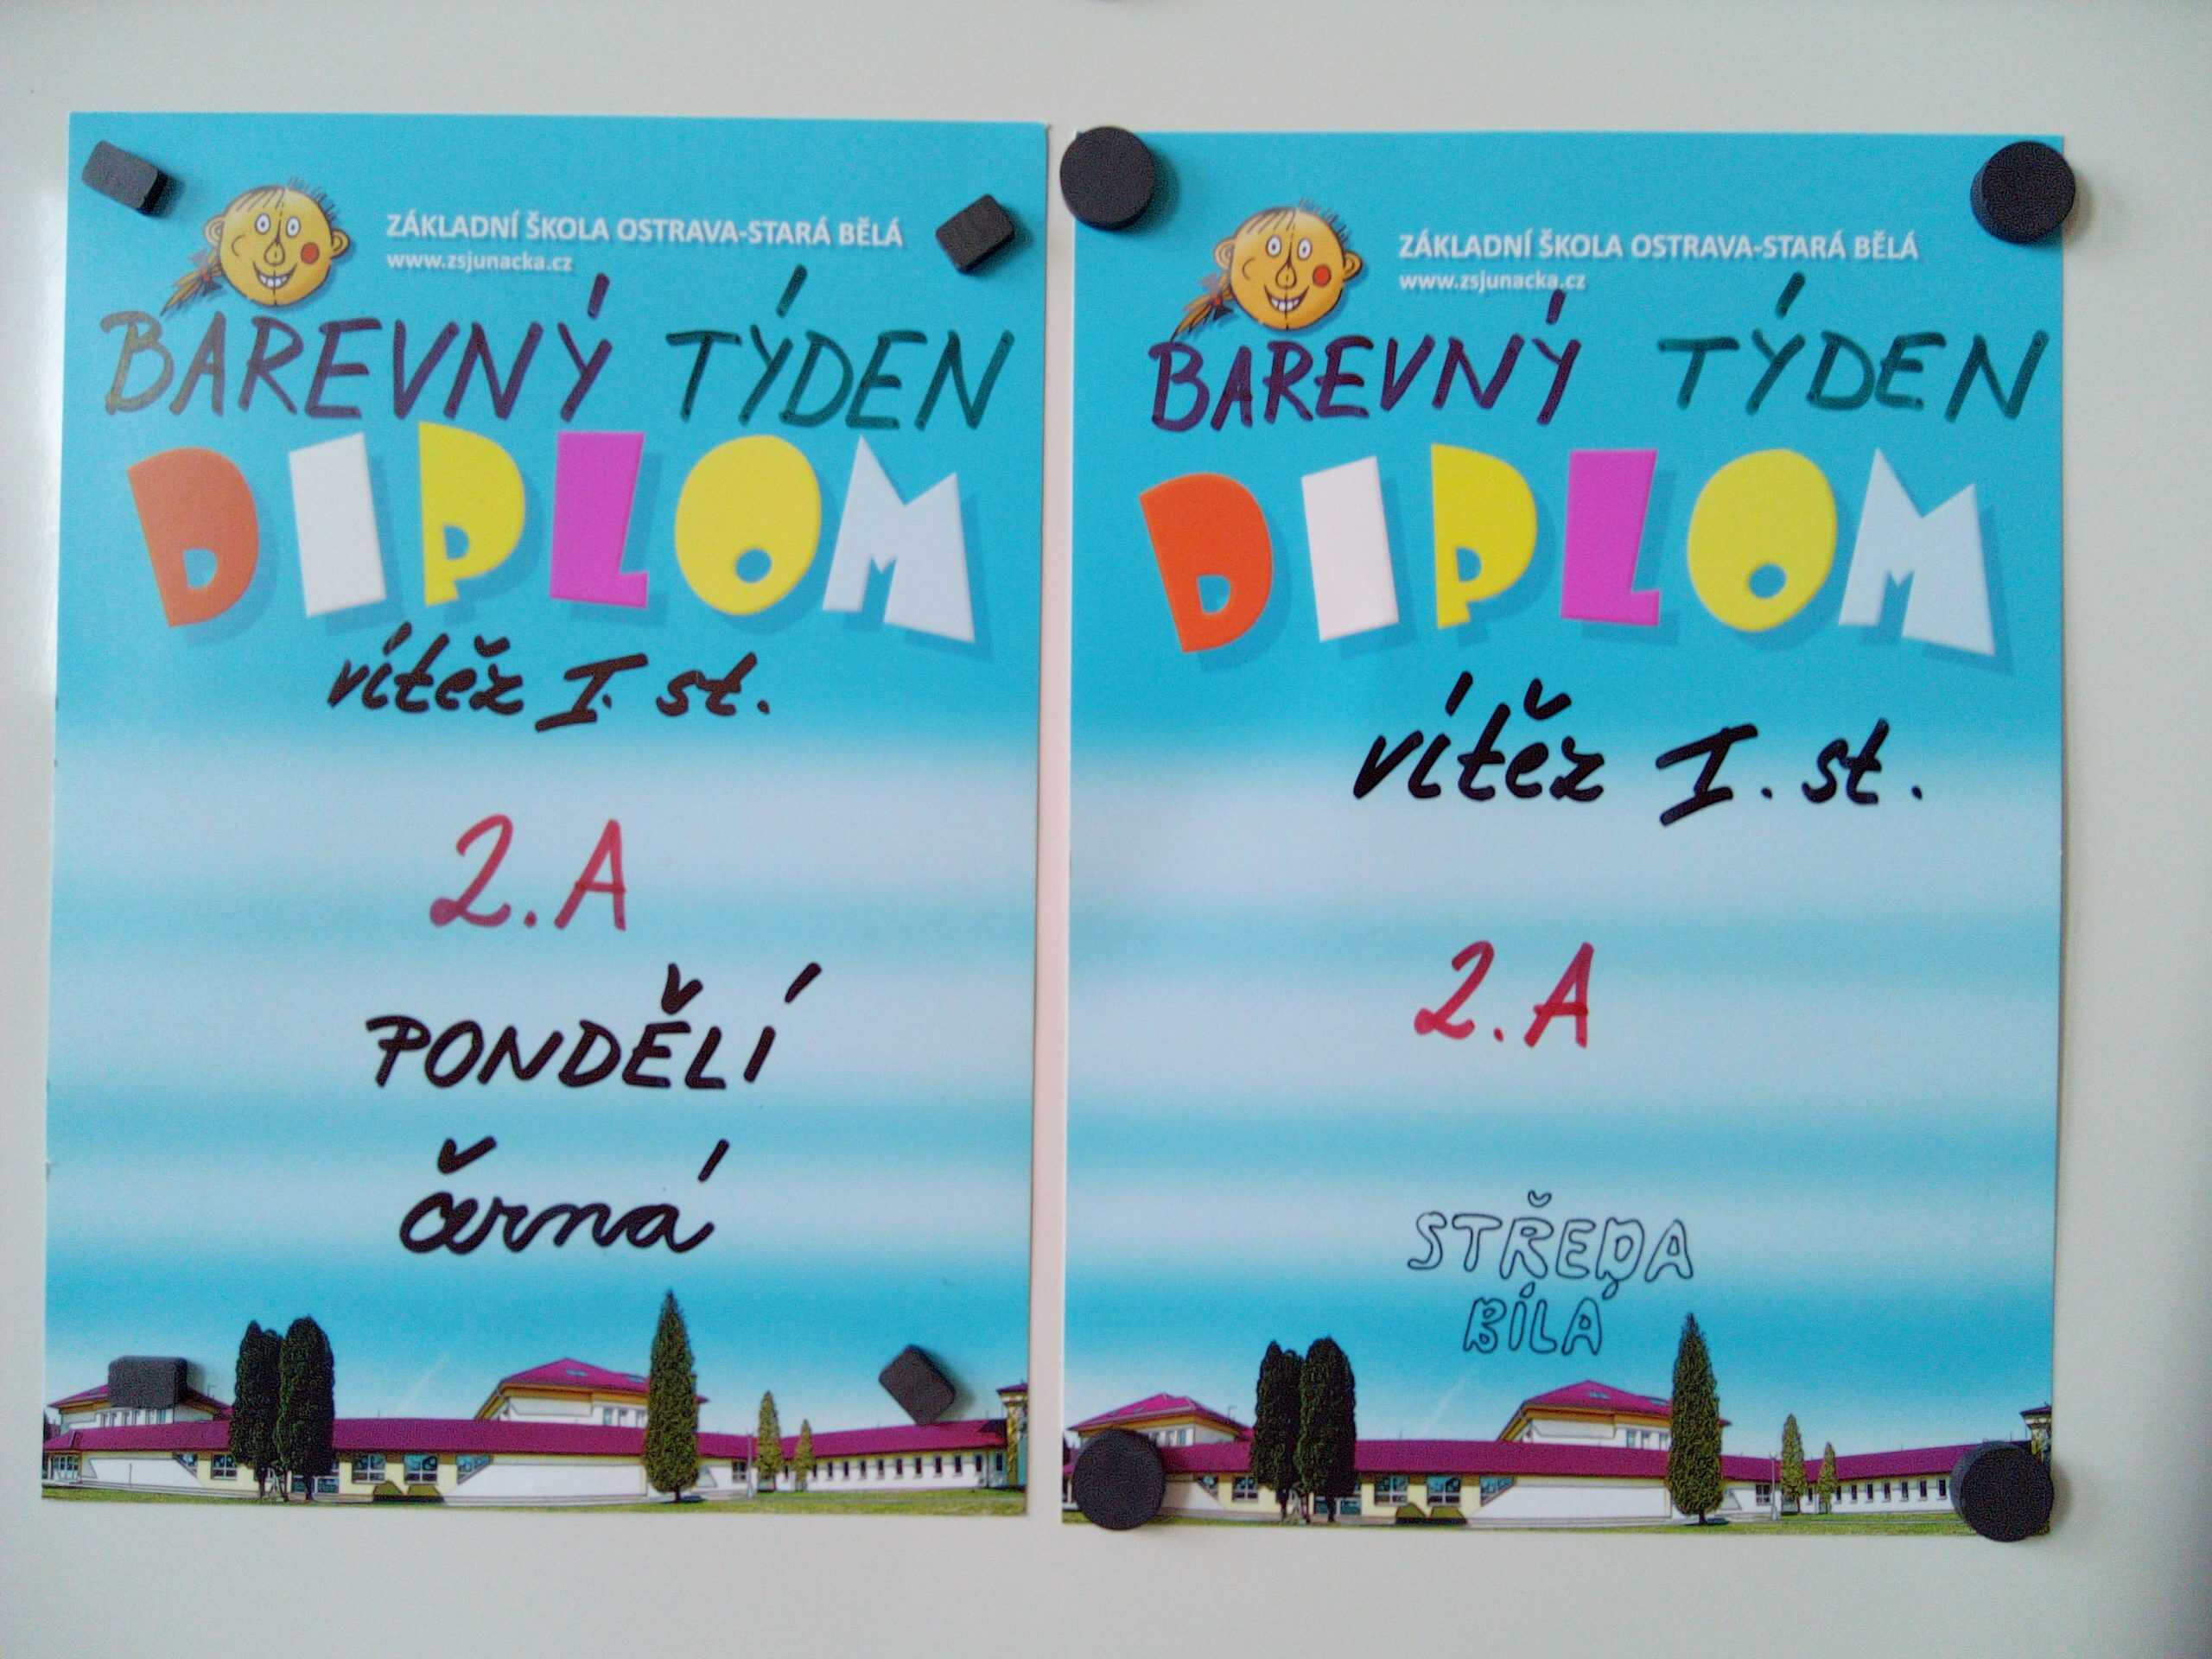 ZÁKLADNÍ ŠKOLA OSTRAVA-STARÁ BĚLÁ
www.zsjunacka.cz
BAREVNÝ TÝDEN
DIPLOM
vítěz I. st.
2.A
PONDĚLÍ
černá
ZÁKLADNÍ ŠKOLA OSTRAVA-STARÁ BĚLÁ
www.zsjunacka.cz
BAREVNÝ TÝDEN
DIPLOM
vítěz I. st.
2.A
STŘEDA
BÍLÁ